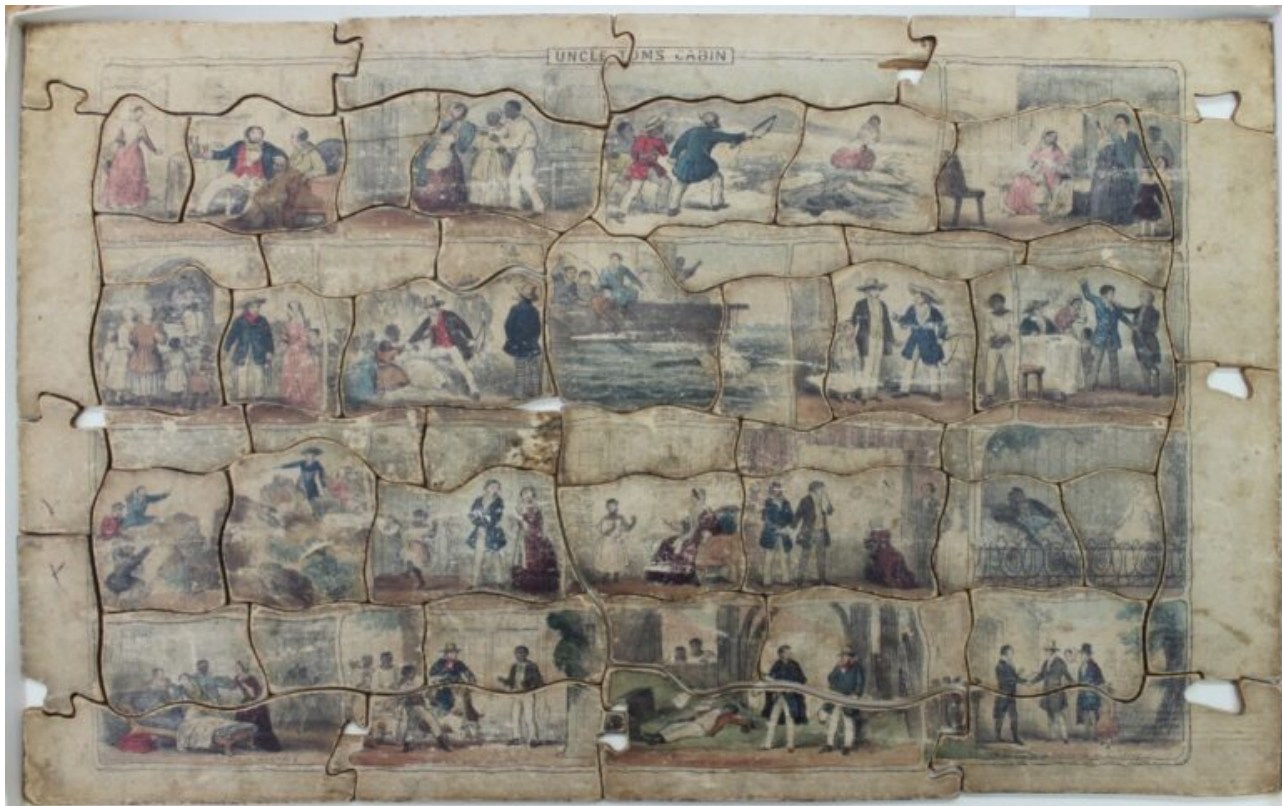 UNCLE TOMS CABIN